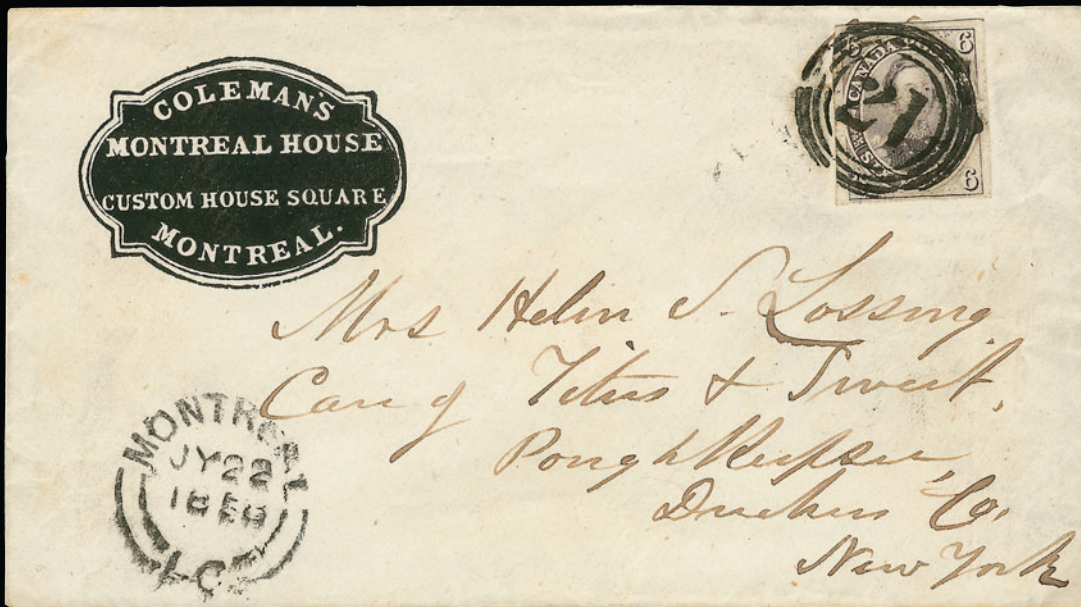 COLEMAN'S
MONTREAL HOUSE
CUSTOM HOUSE SQUARE
MONTREAL.
6 CANADA 6
21
6
Mrs Helen S. Lossing
Care of Titus & Sweet,
Poughkeepsie,
Duchess Co.
New York
MONTREAL
JY 22
1858
L.C.